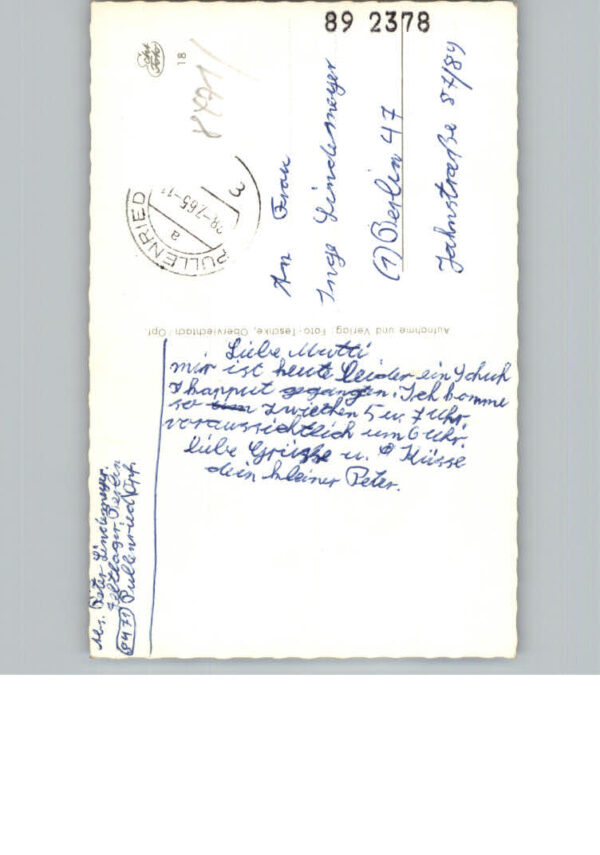 89 2378
Echt
Foto
18
8471/
PULLENRIED
a
28.-7.65-11
An Frau
Inge Lindemeyer
(1) Berlin 47
Jahnstraße 87/89
Aufnahme und Verlag: Foto-Teschke, Oberviechtach/Opf
Liebe Mutti
mir ist heute leider ein Schuh
kapput gegangen. Ich komme
so zwischen 5 u. 7 Uhr
voraussichtlich um 6 Uhr.
liebe Grüße u. Küsse
dein kleiner Peter.
Abs. Peter Lindemeyer
Zeltlager Berlin
(8471) Pullenried Opf.